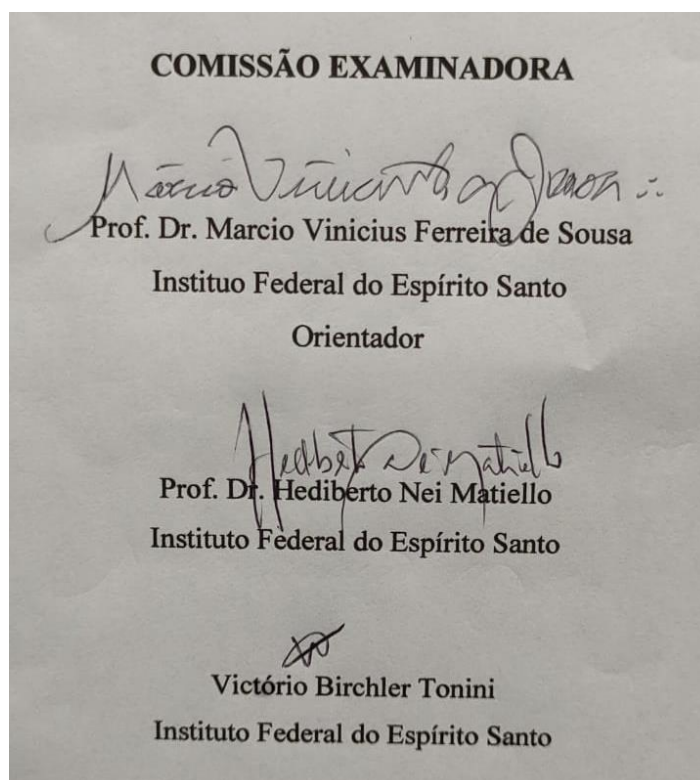 COMISSÃO EXAMINADORA
Márcio Vinicius
Prof. Dr. Marcio Vinicius Ferreira de Sousa
Instituo Federal do Espírito Santo
Orientador
Hediberto Nei Matiello
Prof. Dr. Hediberto Nei Matiello
Instituto Federal do Espírito Santo
Victório Birchler Tonini
Instituto Federal do Espírito Santo